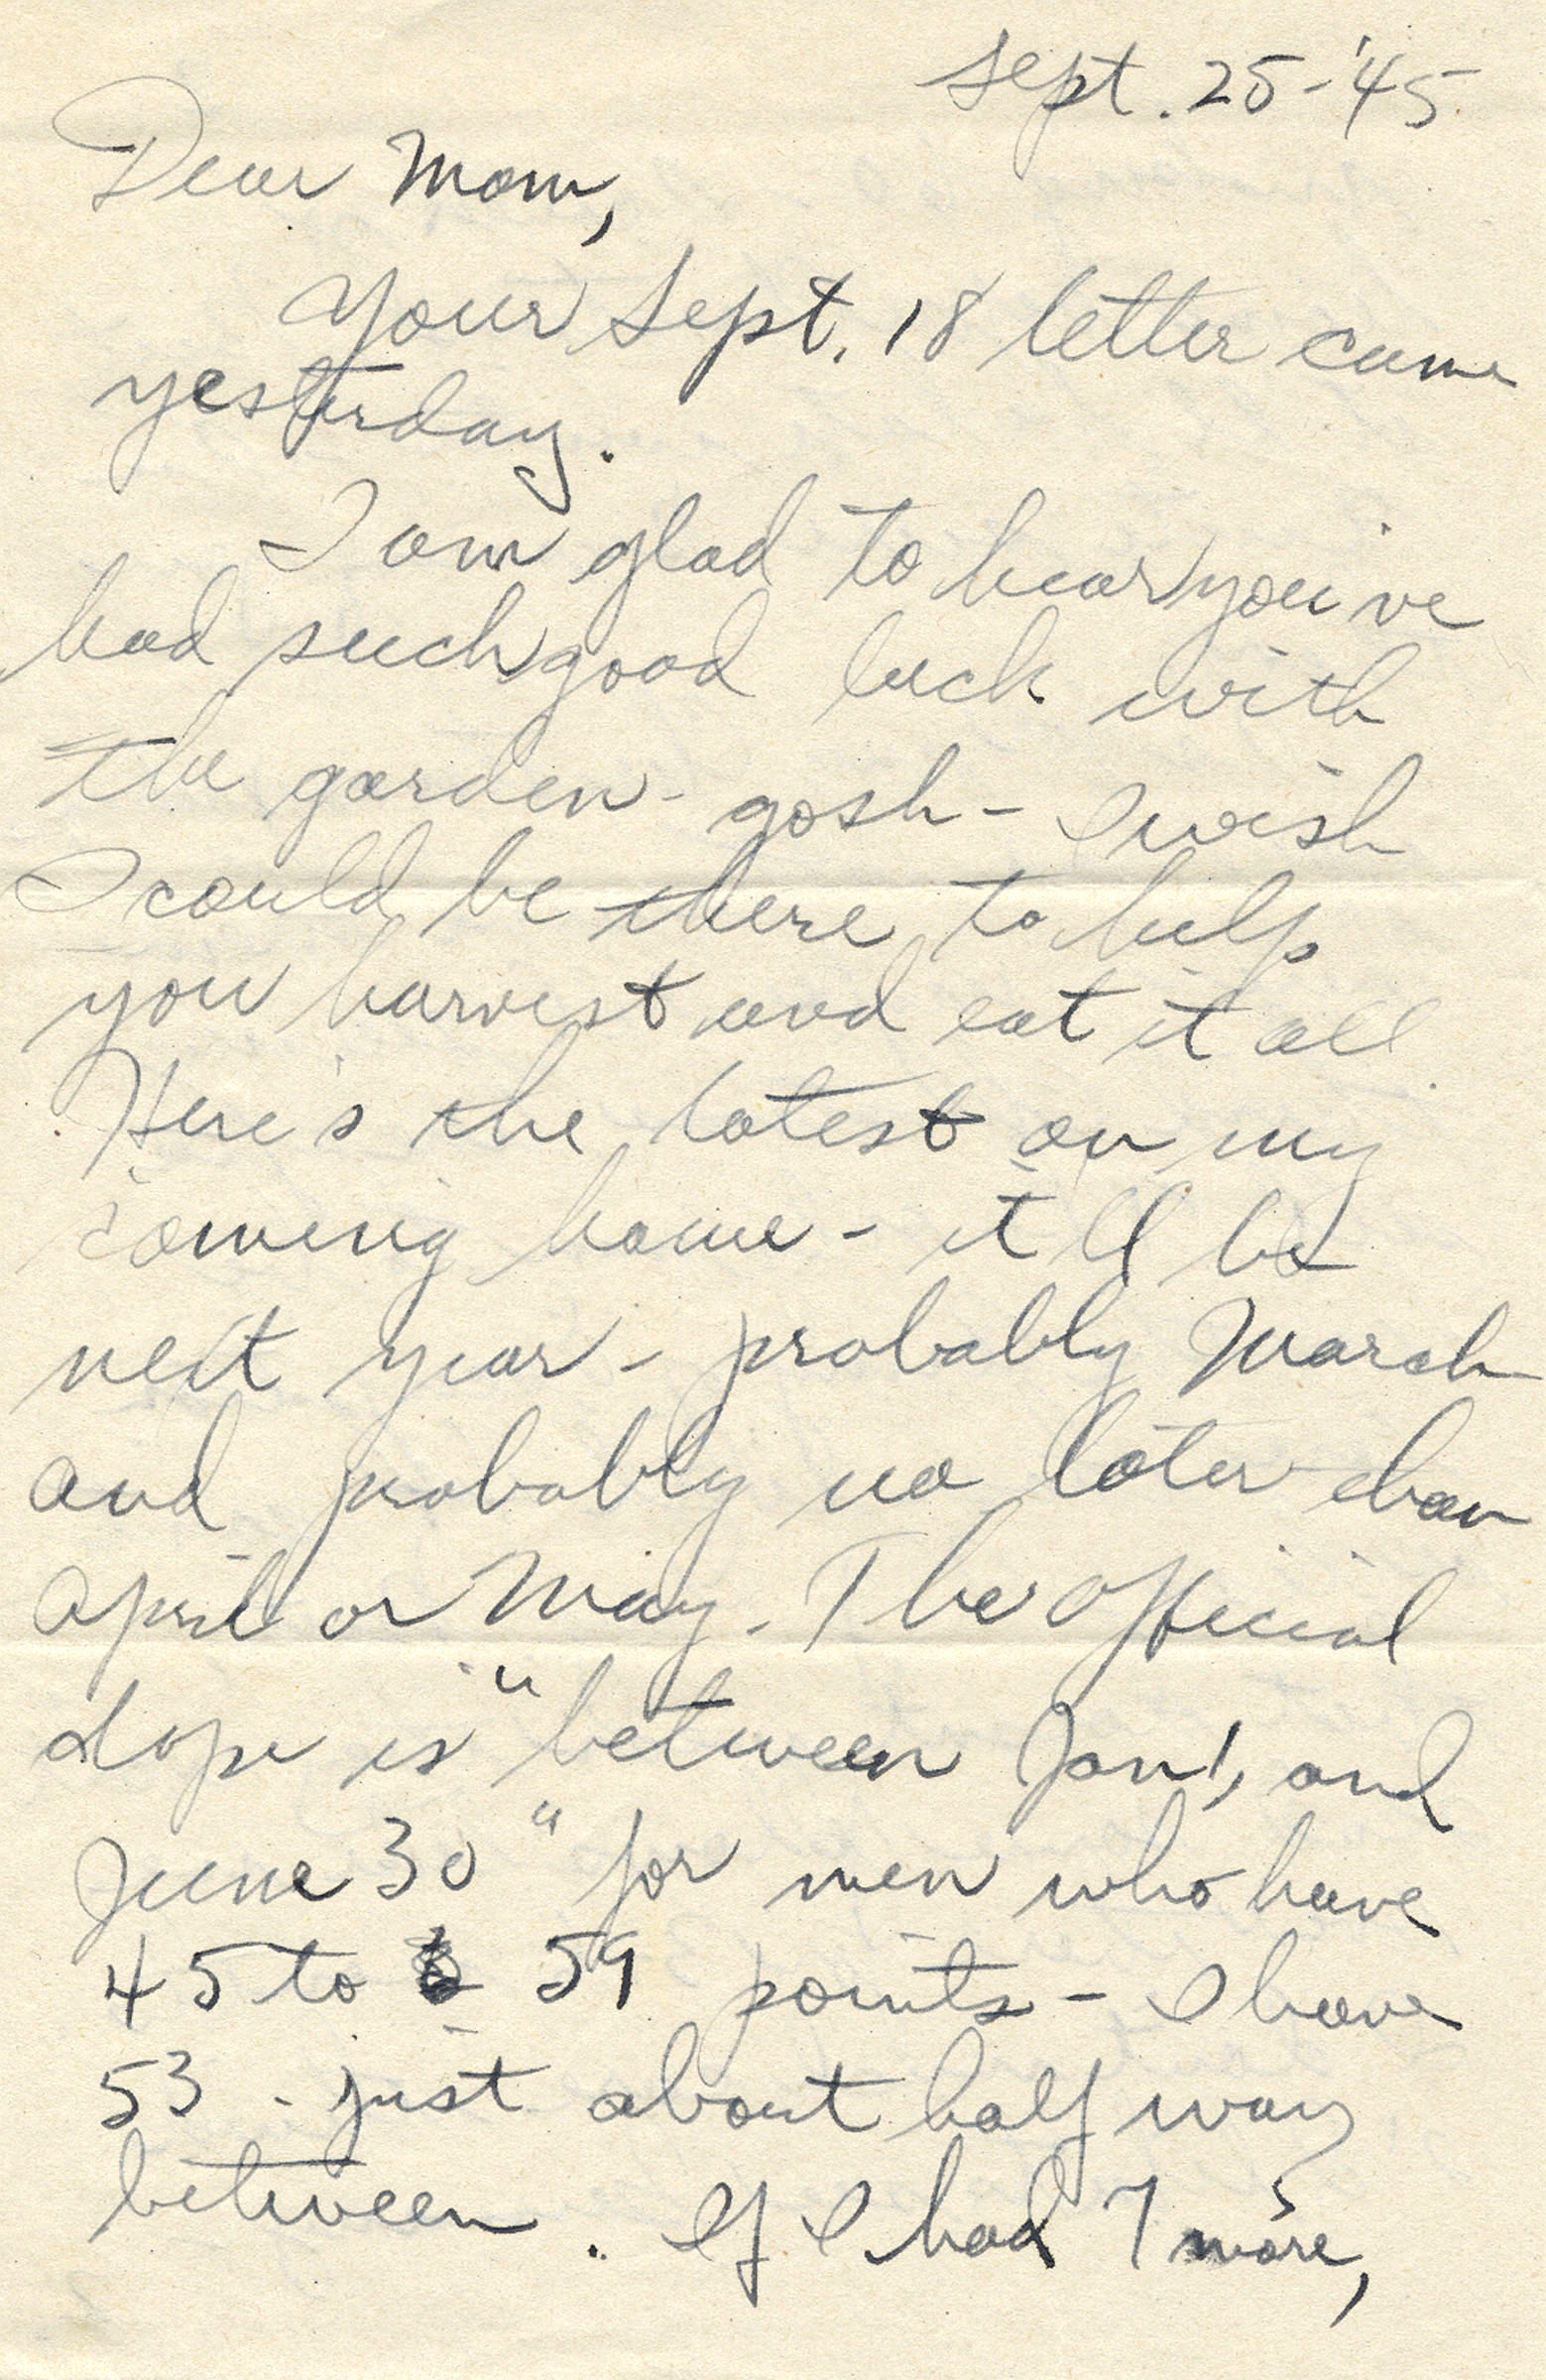 Sept. 25-'45
Dear Mom,
Your Sept. 18 letter came
yesterday.
I am glad to hear you've
had such good luck with
the garden - gosh - I wish
I could be there to help
you harvest and eat it all.
Here's the latest on my
coming home - it'll be
next year - probably March
and probably no later than
April or May. The official
dope is "between Jan 1, and
June 30" for men who have
45 to 59 points - I have
53 - just about half way
between. If I had 7 more,